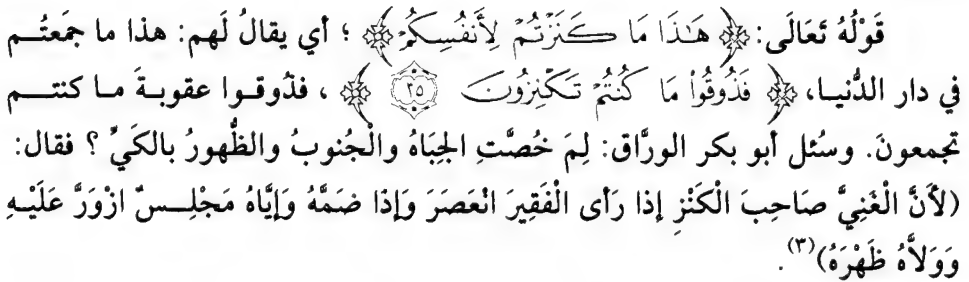 قَوْلُهُ تَعَالَى: ﴿هَٰذَا مَا كَنَزْتُمْ لِأَنفُسِكُمْ﴾ ؛ أي يقالُ لَهم: هذا ما جَمَعتُـم
في دار الدُّنيـا، ﴿فَذُوقُواْ مَا كُنتُمْ تَكْنِزُونَ ٣٥﴾ ، فذُوقـوا عقوبـةَ مـا كنتـم
تجمعونَ. وسُئل أبو بكر الورَّاق: لِمَ خُصَّتِ الجِبَاهُ والْجُنوبُ والظُّهورُ بالكَيِّ ؟ فقال:
(لأَنَّ الْغَنِيَّ صَاحِبَ الْكَنْزِ إذا رَأى الْفَقِيرَ انْعَصَرَ وَإذا ضَمَّهُ وَإيَّاهُ مَجْلِـسٌ ازْوَرَّ عَلَيْـهِ
وَوَلاَّهُ ظَهْرَهُ)(٣) .